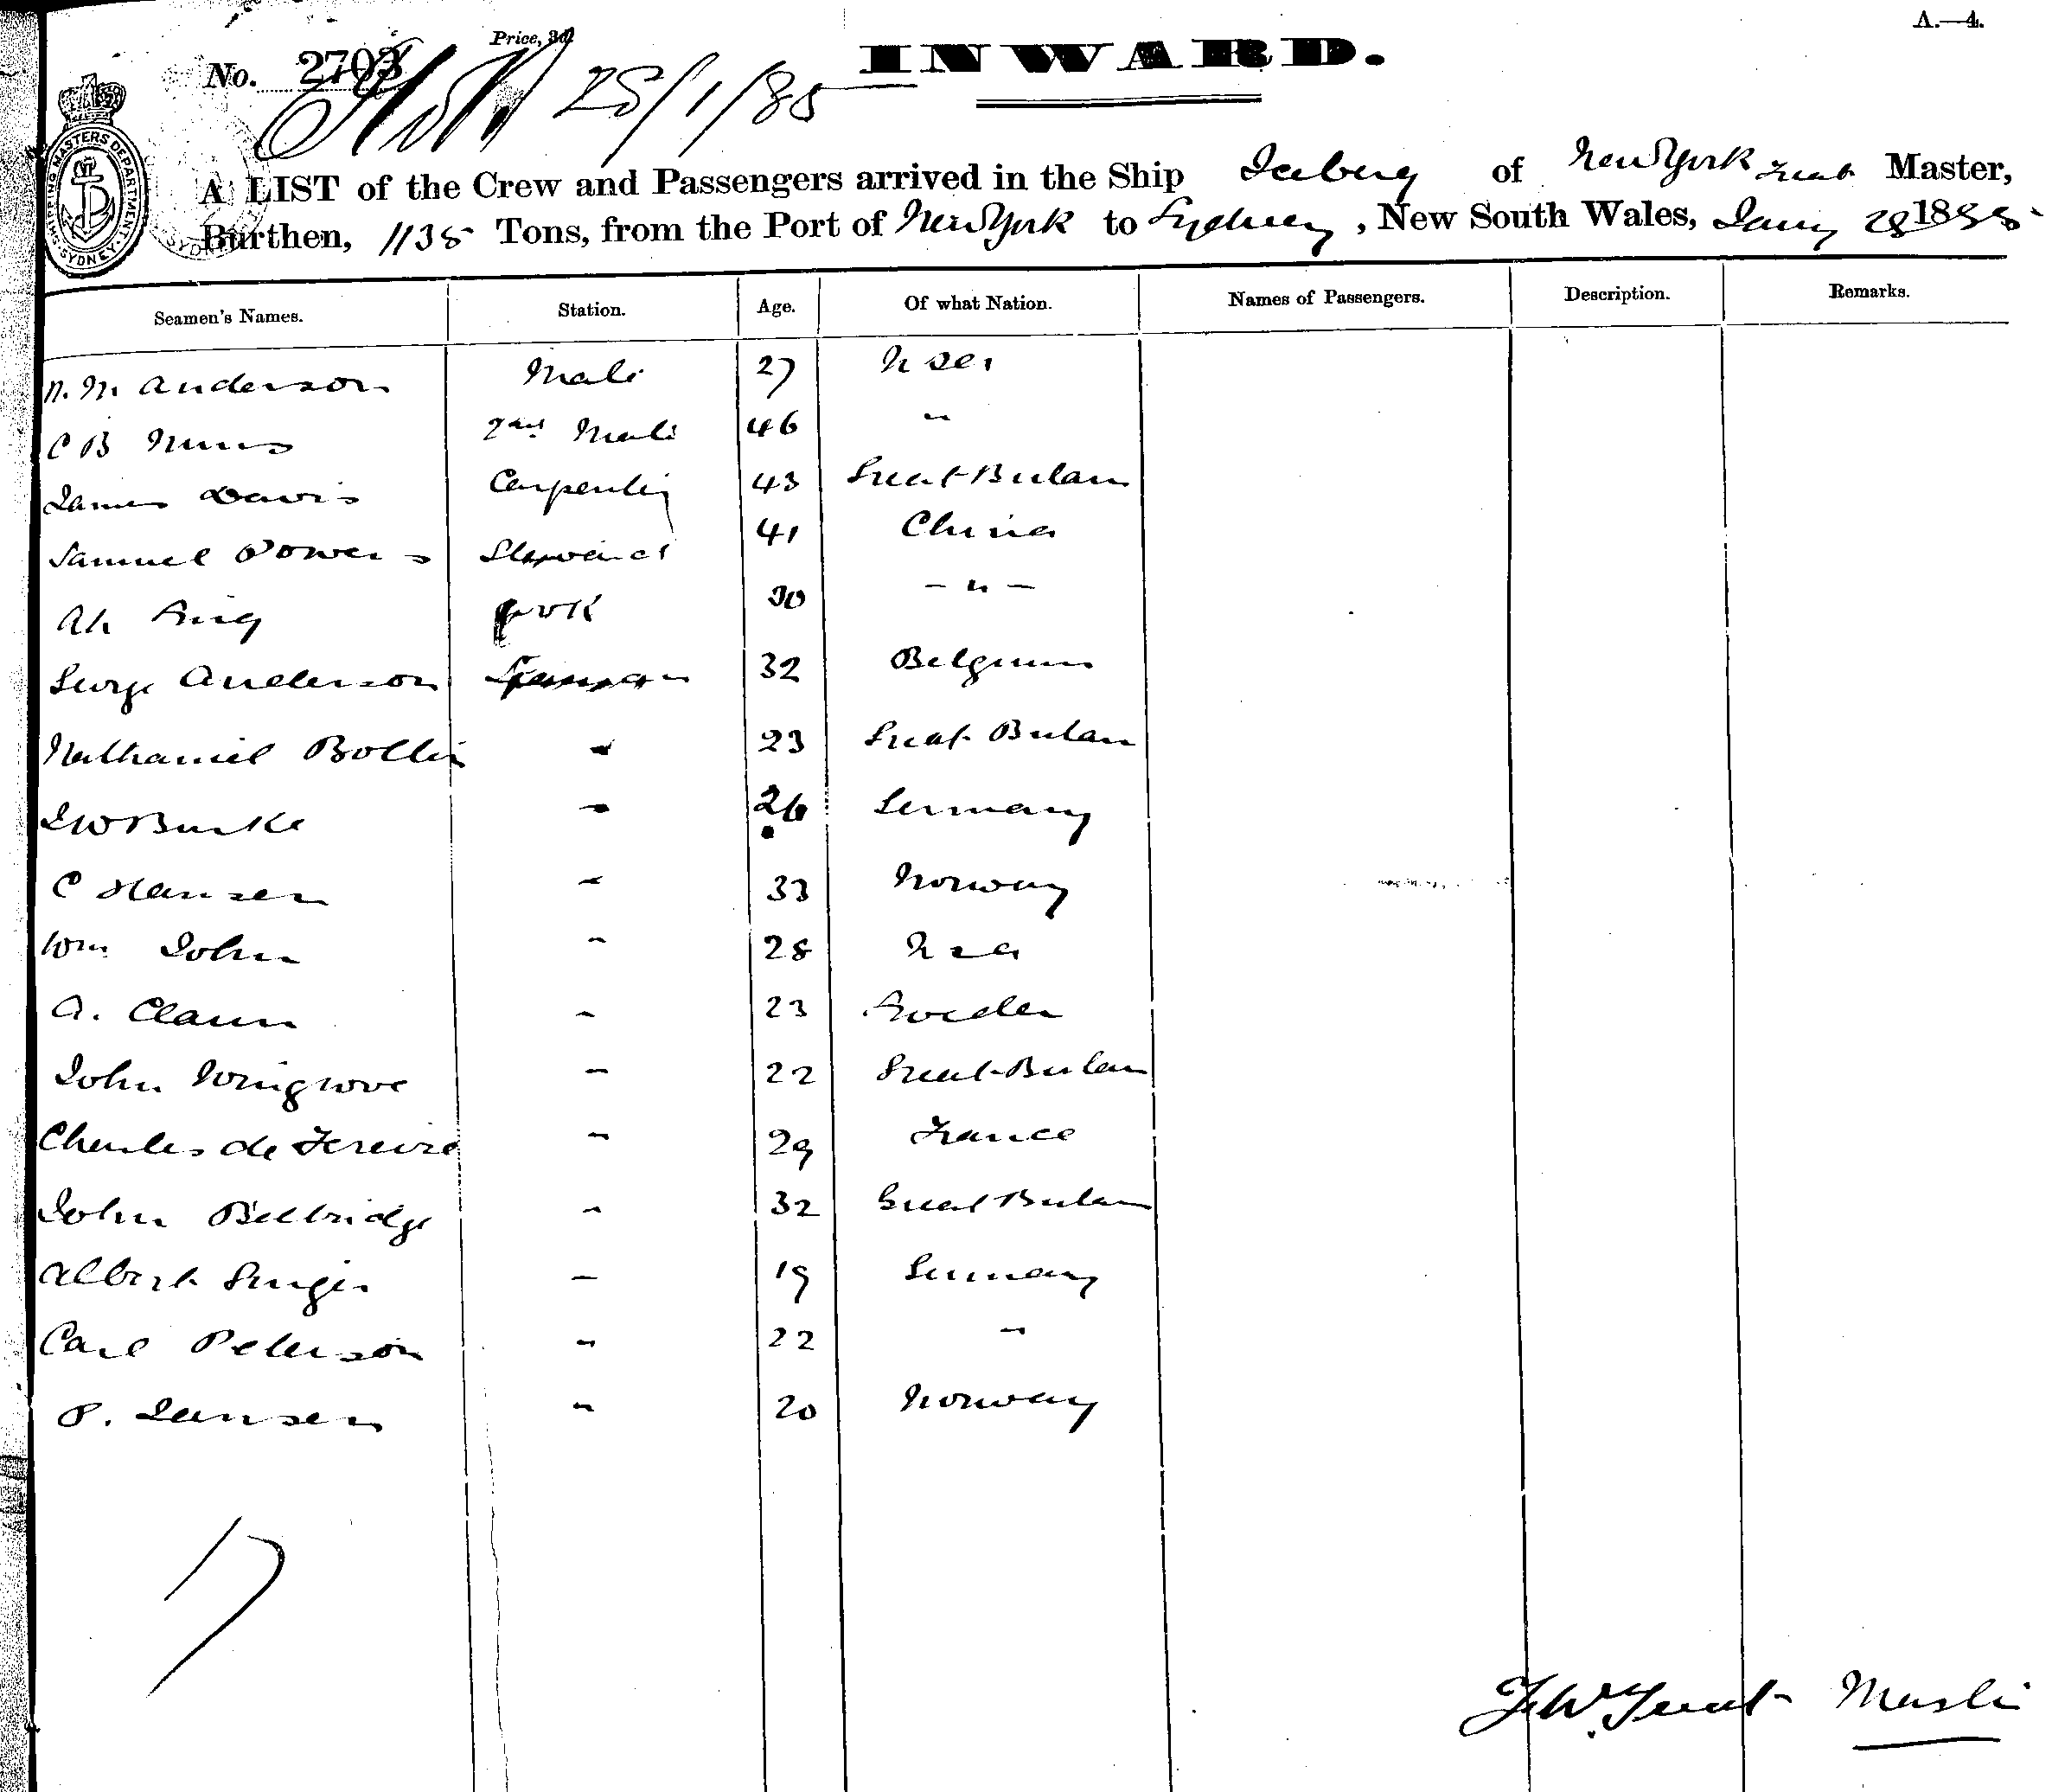 A.—4.
Price, 3d.
No. 2703
INWARD.
28/1/85
A LIST of the Crew and Passengers arrived in the Ship Iceberg of New York Treat Master,
Burthen, 1135 Tons, from the Port of New York to Sydney, New South Wales, Jany 28 1885
SHIPPING MASTERS DEPARTMENT SYDNEY
Seamen's Names. Station. Age. Of what Nation. Names of Passengers. Description. Remarks.
N. M. Anderson Mate 27 U S A
C B 2nd Mate 46 "
James Davis Carpenter 43 Great Britain
Samuel Powers Steward 41 China
Ah Cook 30 - " -
George Anderson Seaman 32 Belgium
Nathaniel Bollin " 23 Great Britain
J W Burke " 26 Germany
C Hansen " 33 Norway
Wm John " 28 U S A
A. " 23 Sweden
John Wingrove " 22 Great Britain
Charles de " 29 France
John Belbridge " 32 Great Britain
Albert Singer " 19 Germany
Carl Peterson " 22 "
P. Jansen " 20 Norway
17
F. W. Treat Master